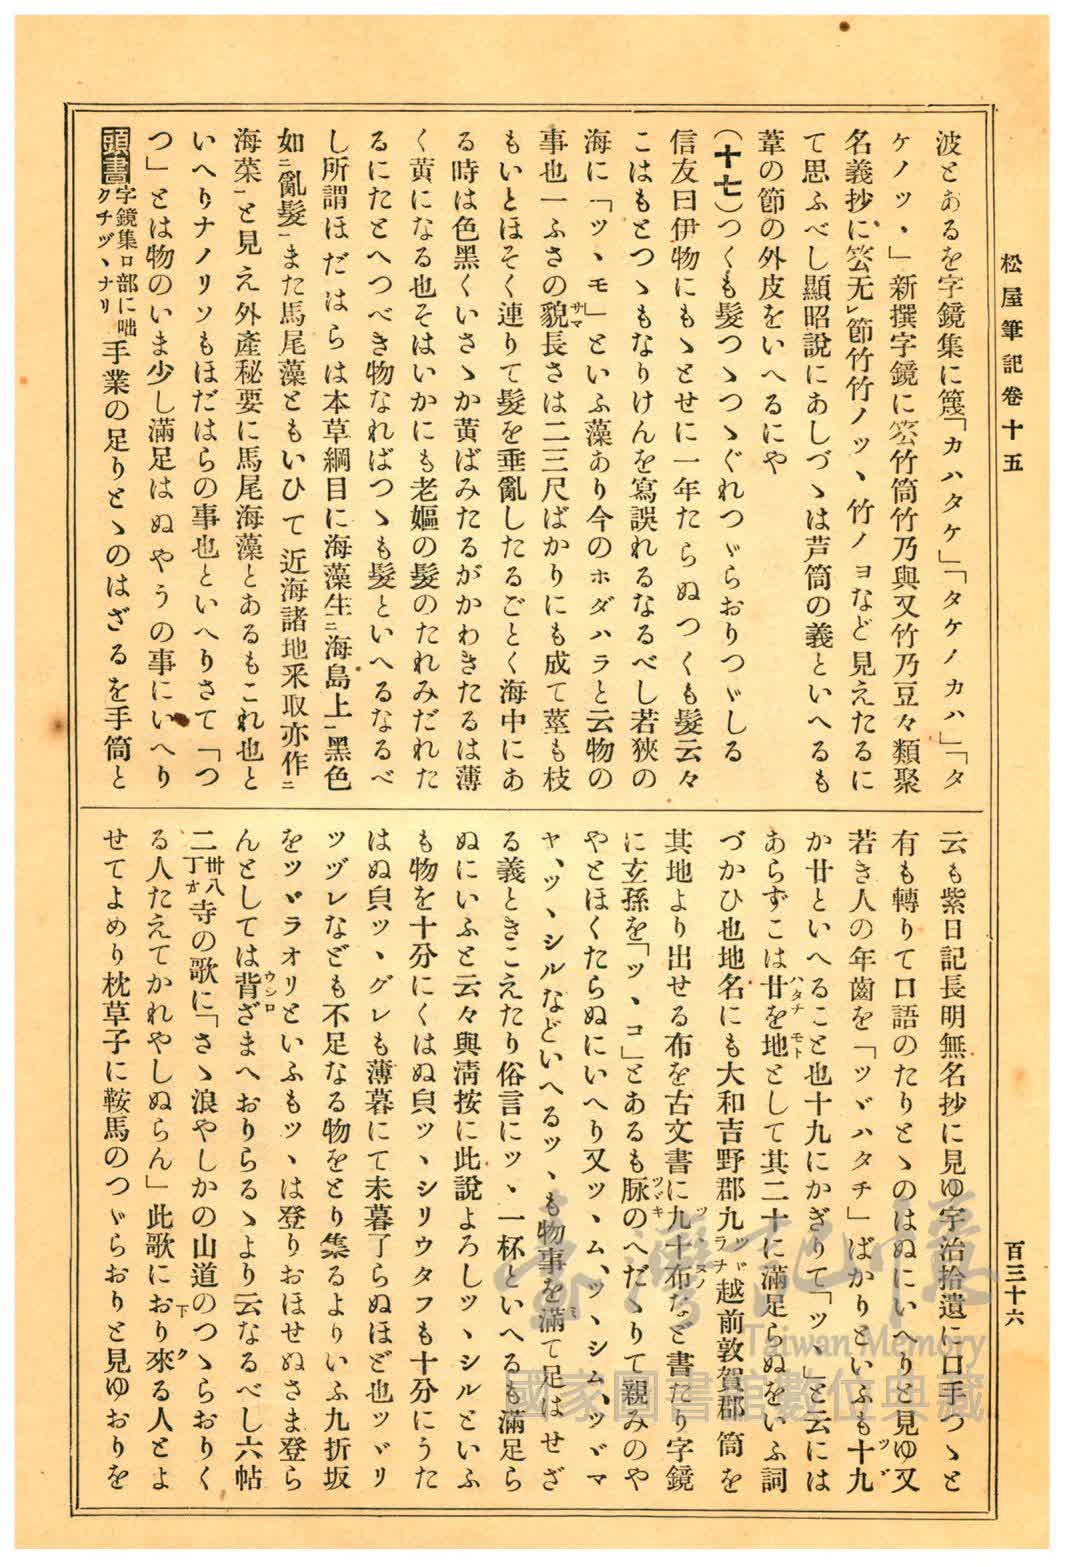 松屋筆記卷十五
百三十六
波とあるを字鏡集に篾「カハタケ」「タケノカハ」「タ
ケノツヽ」新撰字鏡に笂竹筒竹乃與又竹乃豆々類聚
名義抄に笂无節竹竹ノツヽ竹ノヨなど見えたるに
て思ふべし顯昭說にあしづゝは芦筒の義といへるも
葦の節の外皮をいへるにや
(十七)つくも髮つゝつゝぐれつゞらおりつゞしる
信友曰伊物にもゝとせに一年たらぬつくも髮云々
こはもとつゝもなりけんを寫誤れるなるべし若狹の
海に「ツヽモ」といふ藻あり今のホダハラと云物の
事也一ふさの貌サマ長さは二三尺ばかりにも成て莖も枝
もいとほそく連りて髮を垂亂したるごとく海中にあ
る時は色黑くいさゝか黃ばみたるがかわきたるは薄
く黃になる也そはいかにも老嫗の髮のたれみだれた
るにたとへつべき物なればつゝも髮といへるなるべ
し所謂ほだはらは本草綱目に海藻生ニ海島上一黑色
如ニ亂髮一また馬尾藻ともいひて近海諸地釆取亦作ニ
海菜一と見え外產秘要に馬尾海藻とあるもこれ也と
いへりナノリソもほだはらの事也といへりさて「つ
つ」とは物のいま少し滿足はぬやうの事にいへり
頭書 字鏡集ロ部に咄クチヅヽナリ 手業の足りとゝのはざるを手筒と
云も紫日記長明無名抄に見ゆ宇治拾遺に口手つゝと
有も轉りて口語のたりとゝのはぬにいへりと見ゆ又
若き人の年齒を「ツヾハタチ」ばかりといふも十九ツヾ
か廿といへること也十九にかぎりて「ツヽ」と云には
あらずこは廿ハタチを地モトとして其二十に滿足らぬをいふ詞
づかひ也地名にも大和吉野郡九ツヾラナ越前敦賀郡筒を
其地より出せる布を古文書に九十布ツヽヌノなど書たり字鏡
に玄孫を「ツヽコ」とあるも脉ツヾキのへだゝりて親みのや
やとほくたらぬにいへり又ツヽム、ツヽシム、ツヾマ
ヤ、ツヽシルなどいへるツヽも物事を滿ミて足はせざ
る義ときこえたり俗言にツヽ一杯といへるも滿足ら
ぬにいふと云々與淸按に此說よろしツヽシルといふ
も物を十分にくはぬ㒵ツヽシリウタフも十分にうた
はぬ㒵ツヽグレも薄暮にて未暮了らぬほど也ツヾリ
ツヅレなども不足なる物をとり集るよりいふ九折坂
をツヾラオリといふもツヽは登りおほせぬさま登ら
んとしては背ウシロざまへおりらるゝより云なるべし六帖
二 卅八丁か 寺の歌に「さゝ浪やしかの山道のつゝらおりく
る人たえてかれやしぬらん」此歌におり下來ク る人とよ
せてよめり枕草子に鞍馬のつゞらおりと見ゆおりを
臺灣記憶
Taiwan Memory
國家圖書館數位典藏